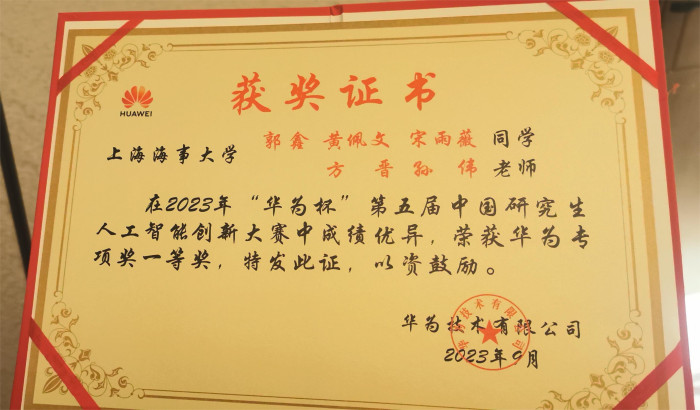 获奖证书
HUAWEI
郭鑫 黄佩文 宋雨薇 同学
上海海事大学
方晋 孙伟 老师
在2023年“华为杯”第五届中国研究生
人工智能创新大赛中成绩优异，荣获华为专
项奖一等奖，特发此证，以资鼓励。
华为技术有限公司
2023年9月